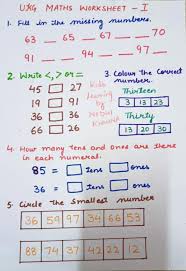 UKG MATHS WORKSHEET - I
1. Fill in the missing numbers.
63 __ 65 __ 67 __ __ 70
91 __ __ 94 __ __ 97 __
2. Write <, > or =
45 □ 27
19 □ 91
36 □ 36
66 □ 26
Kids Learning by Khurana
3. Colour the Correct number.
Thirteen
3 13 23
Thirty
13 20 30
4. How many tens and ones are there in each numeral.
85 = □ tens □ ones
36 = □ tens □ ones
5. Circle the Smallest number
36 59 97 34 66 53
88 74 37 42 22 12